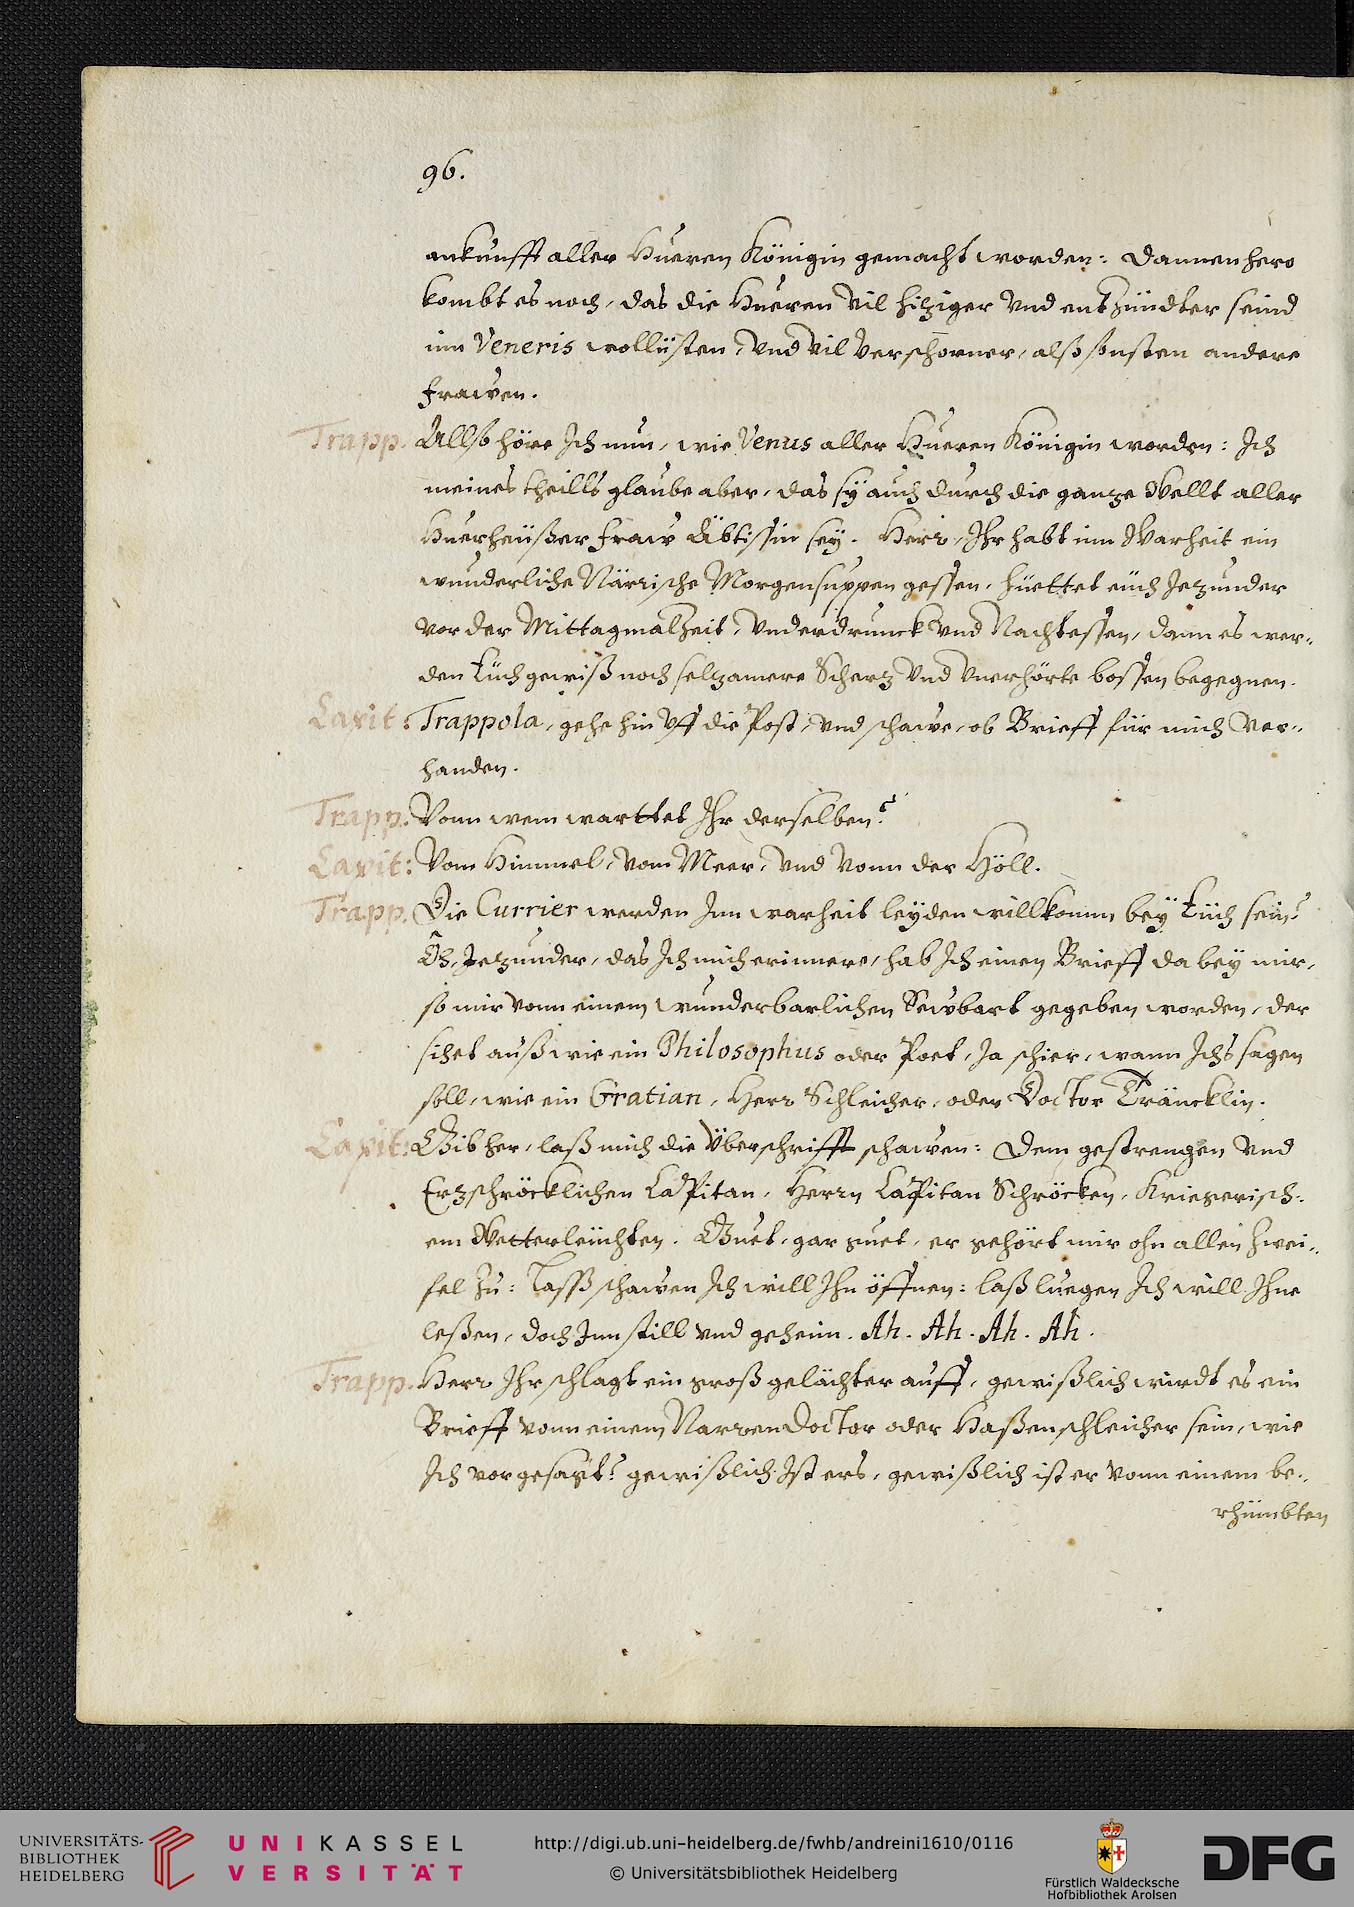 96.
ankunfft aller Hueren Königin gemacht worden: Dannenhero
kombt es noch, das die Hueren vil hitziger vnd entzündter seind
inn Veneris wollüsten, vnd vil verschorner, alß sonsten andere
frawen.
Trapp. Allso höre Ich nun, wie Venus aller Hueren Königin worden: Ich
meines theills glaube aber, das sy auch durch die ganze Wellt aller
Huerheüßer fraw Äbtissin sey. Herr, Ihr habt inn Warheit ein
wunderliche Närrische Morgensuppen gessen, hüettet eüch Jezunder
vor der Mittagmalzeit, vnderdrunck vnd Nachtessen, dann es wer-
den Eüch gewiß noch selzamere Scherz vnd vnerhörte bossen begegnen.
Capit: Trappola, gehe hin vff die Post, vnd schawe, ob Brieff für mich ver-
handen.
Trapp. Vonn wem warttet Ihr derselben?
Capit: Vom Himmel, vom Meer, vnd vonn der Höll.
Trapp. Die Currier werden Inn warheit leyden willkomm bey Eüch sein?
Oh, Jezunder, das Ich mich erinnere, hab Ich einen Brieff da bey mir,
so mir vonn einem wunderbarlichen Sewbart gegeben worden, der
sihet auß wie ein Philosophus oder Poet, Ja schier, wann Ichs sagen
soll, wie ein Gratian, Herr Schleicher, oder Doctor Träncklin.
Capit: Gib her, laß mich die Überschrifft schawen: Dem gestrengen vnd
Erzschröcklichen Capitan, Herrn Capitan Schröcken, Kriegerisch-
em Wetterleüchten. Guet, gar guet, er gehört mir ohn allen zwei-
fel zu: Lasß schawen Ich will Ihn öffnen: laß luegen Ich will Ihne
leßen, doch Inn still vnd geheim. Ah. Ah. Ah. Ah.
Trapp. Herr Ihr schlagt ein groß gelächter auff, gewißlich wirdt es ein
Brieff vonn einem Narren Doctor oder Haßenschleicher sein, wie
Ich vorgesagt? gewißlich Ist ers, gewißlich ist er vonn einem be-
rhümbten
UNIVERSITÄTS-
BIBLIOTHEK
HEIDELBERG
UNIKASSEL
VERSITÄT
http://digi.ub.uni-heidelberg.de/fwhb/andreini1610/0116
© Universitätsbibliothek Heidelberg
Fürstlich Waldecksche
Hofbibliothek Arolsen
DFG